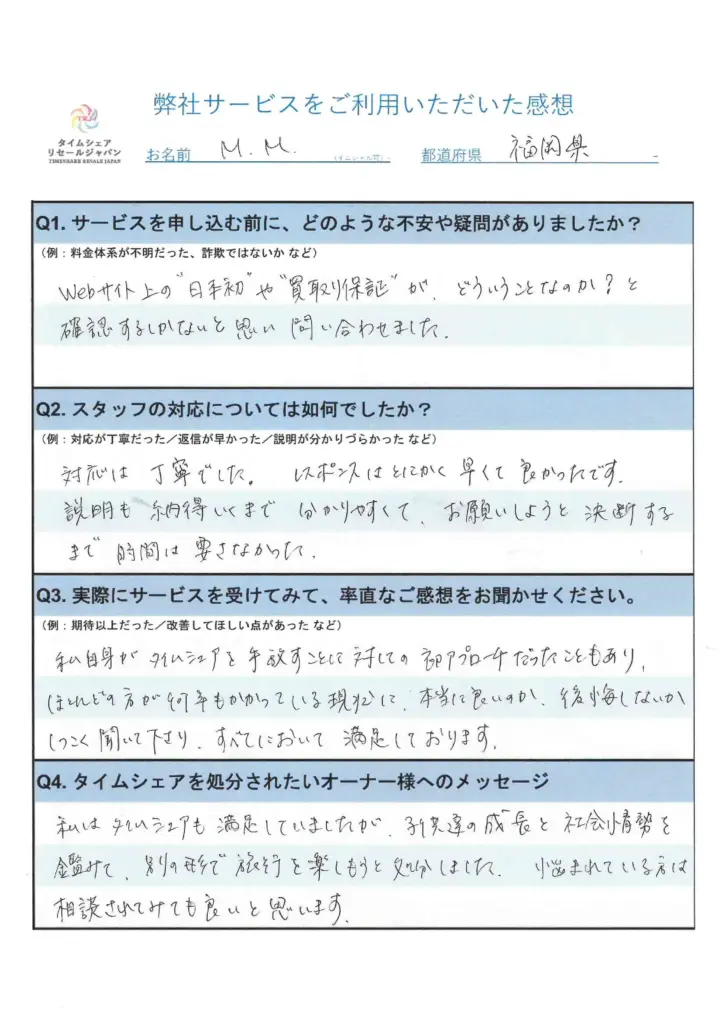 弊社サービスをご利用いただいた感想
タイムシェア
リセールジャパン
TIMESHARE RESALE JAPAN
お名前 M.M. (イニシャル可) 都道府県 福岡県
Q1. サービスを申し込む前に、どのような不安や疑問がありましたか？
（例：料金体系が不明だった、詐欺ではないか など）
Webサイト上の“日本初”や“買取り保証”が、どういうことなのか？と
確認するしかないと思い 問い合わせました.
Q2. スタッフの対応については如何でしたか？
（例：対応が丁寧だった／返信が早かった／説明が分かりづらかった など）
対応は 丁寧でした。 レスポンスはとにかく 早くて 良かったです.
説明も 納得いくまで 分かりやすくて、お願いしようと 決断する
まで 時間は 要さなかった.
Q3. 実際にサービスを受けてみて、率直なご感想をお聞かせください。
（例：期待以上だった／改善してほしい点があった など）
私自身が タイムシェアを 手放すことに 対しての 初アプローチだったこともあり、
ほとんどの方が何年もかかっている現状に、本当に良いのか、後悔しないか
しつこく 聞いて下さり、すべてにおいて 満足しております.
Q4. タイムシェアを処分されたいオーナー様へのメッセージ
私は タイムシェアも 満足していましたが、子供達の成長と 社会情勢を
鑑みて、別の形で 旅行を楽しもうと処分しました. 悩まれている方は
相談されてみても良いと思います.